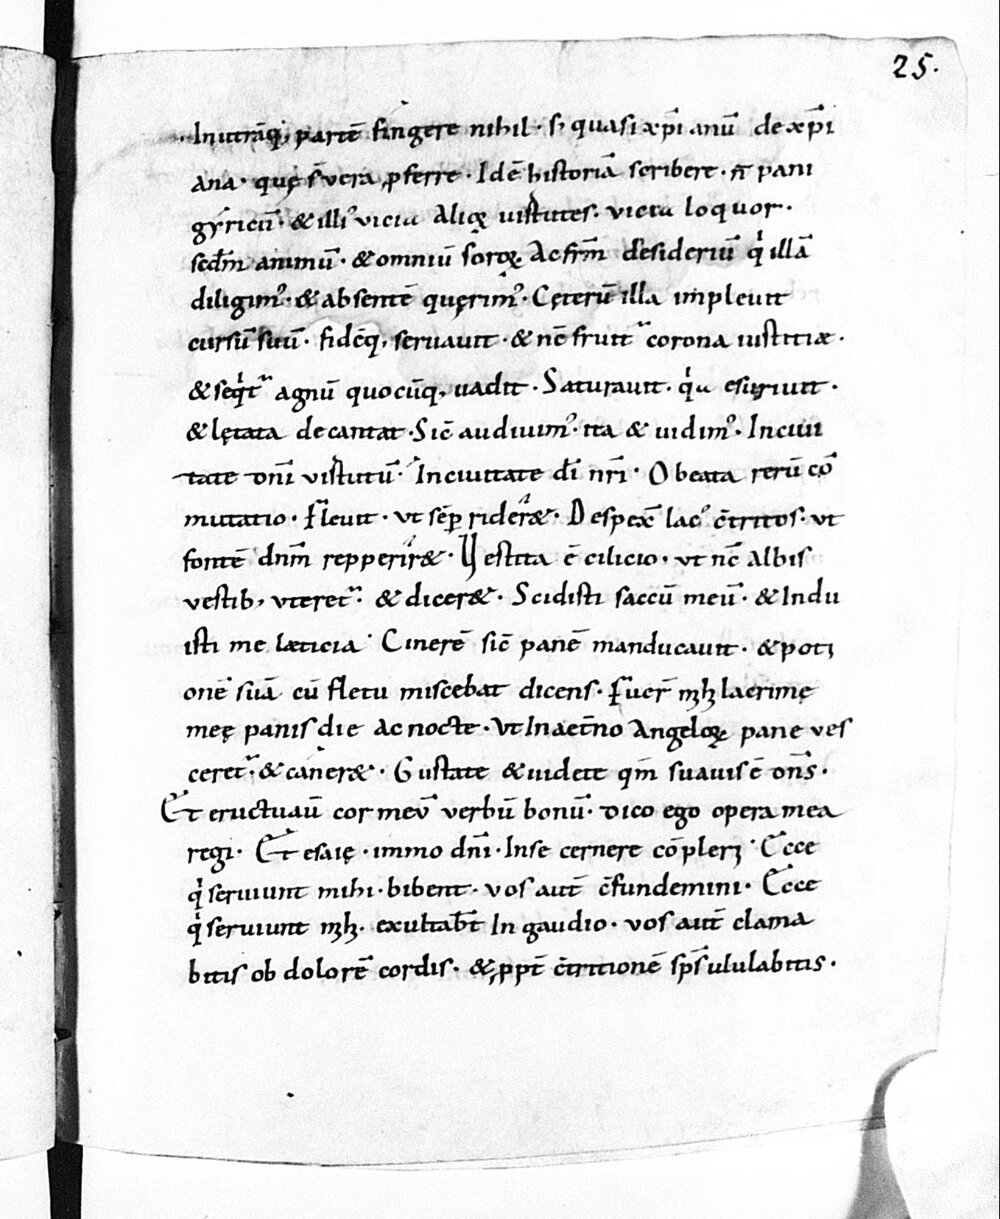 25.
Inutrāq; partē fingere nihil · s; quasi xp̄i anū de xp̄i
ana · quę s̄ vera ꝓferre · Idē historiā scribere · n̄ pani
gyricū · & illiꝰ vicia aliꝙ uirtutes · victu loquor ·
sed̄m animū · & omniū soroꝝ ac fr̄m desideriū qͥ illā
diligimꝰ · & absentē quęrimꝰ · Cęterū illa impleuit
cursū suū · fidēq; seruauit · & nc̄ fruit᷑ corona iustitiæ ·
& seqͥt᷑ agnū quocūq; uadit · Saturauit · qͥa esuriuit ·
& lętata decantat · Sic̄ audiuimꝰ · ita & uidimꝰ · Inciui
tate dn̄i virtutū · Inciuitate dī nr̄i · O beata rerū cō
mutatio · Fleuit · vt sēp rider&᷑ · Despex̄ lacꝰ c̄tritos · vt
fontē dn̄m repperir&᷑ · Uestita ē cilicio · vt nc̄ albis
vestib; vteret᷑ · & dicer& · Scidisti saccū meū · & Indu
isti me læticia · Cinerē sic̄ panē manducauit · & poti
onē suā cū fletu miscebat dicens · Fuer̄ mꝫ lacrimę
meę panis die ac nocte · vt Inaet̄no Angeloꝝ pane ves
ceret᷑ · & caner& · Gustate & uidete qm̄ suauis ē dn̄s ·
Et eructuaū cor meū verbū bonū · dico ego opera mea
regi · Et esaię · immo dn̄i · Inse cernere cōpleri · Ecce
qͥ seruiunt mihi · bibent · vos aut̄ c̄fundemini · Ecce
qͥ seruiunt mꝫ · exultab̄t In gaudio · vos aut̄ clama
bitis ob dolorē cordis · & ꝓpt̄ c̄tritionē sp̄s ululabitis ·